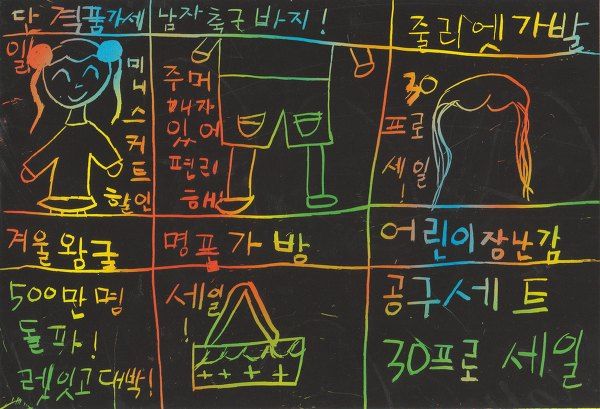 단 격품가세
일
미니스커트
할인
남자 축구 바지!
주머
있어
편리
해
줄리엣 가발
30
프로
세일!
겨울왕굴
500만 명
돌파!
렛잇고 대박!
명픈가방
세일
!
어린이장난감
공구세트
30프로 세일